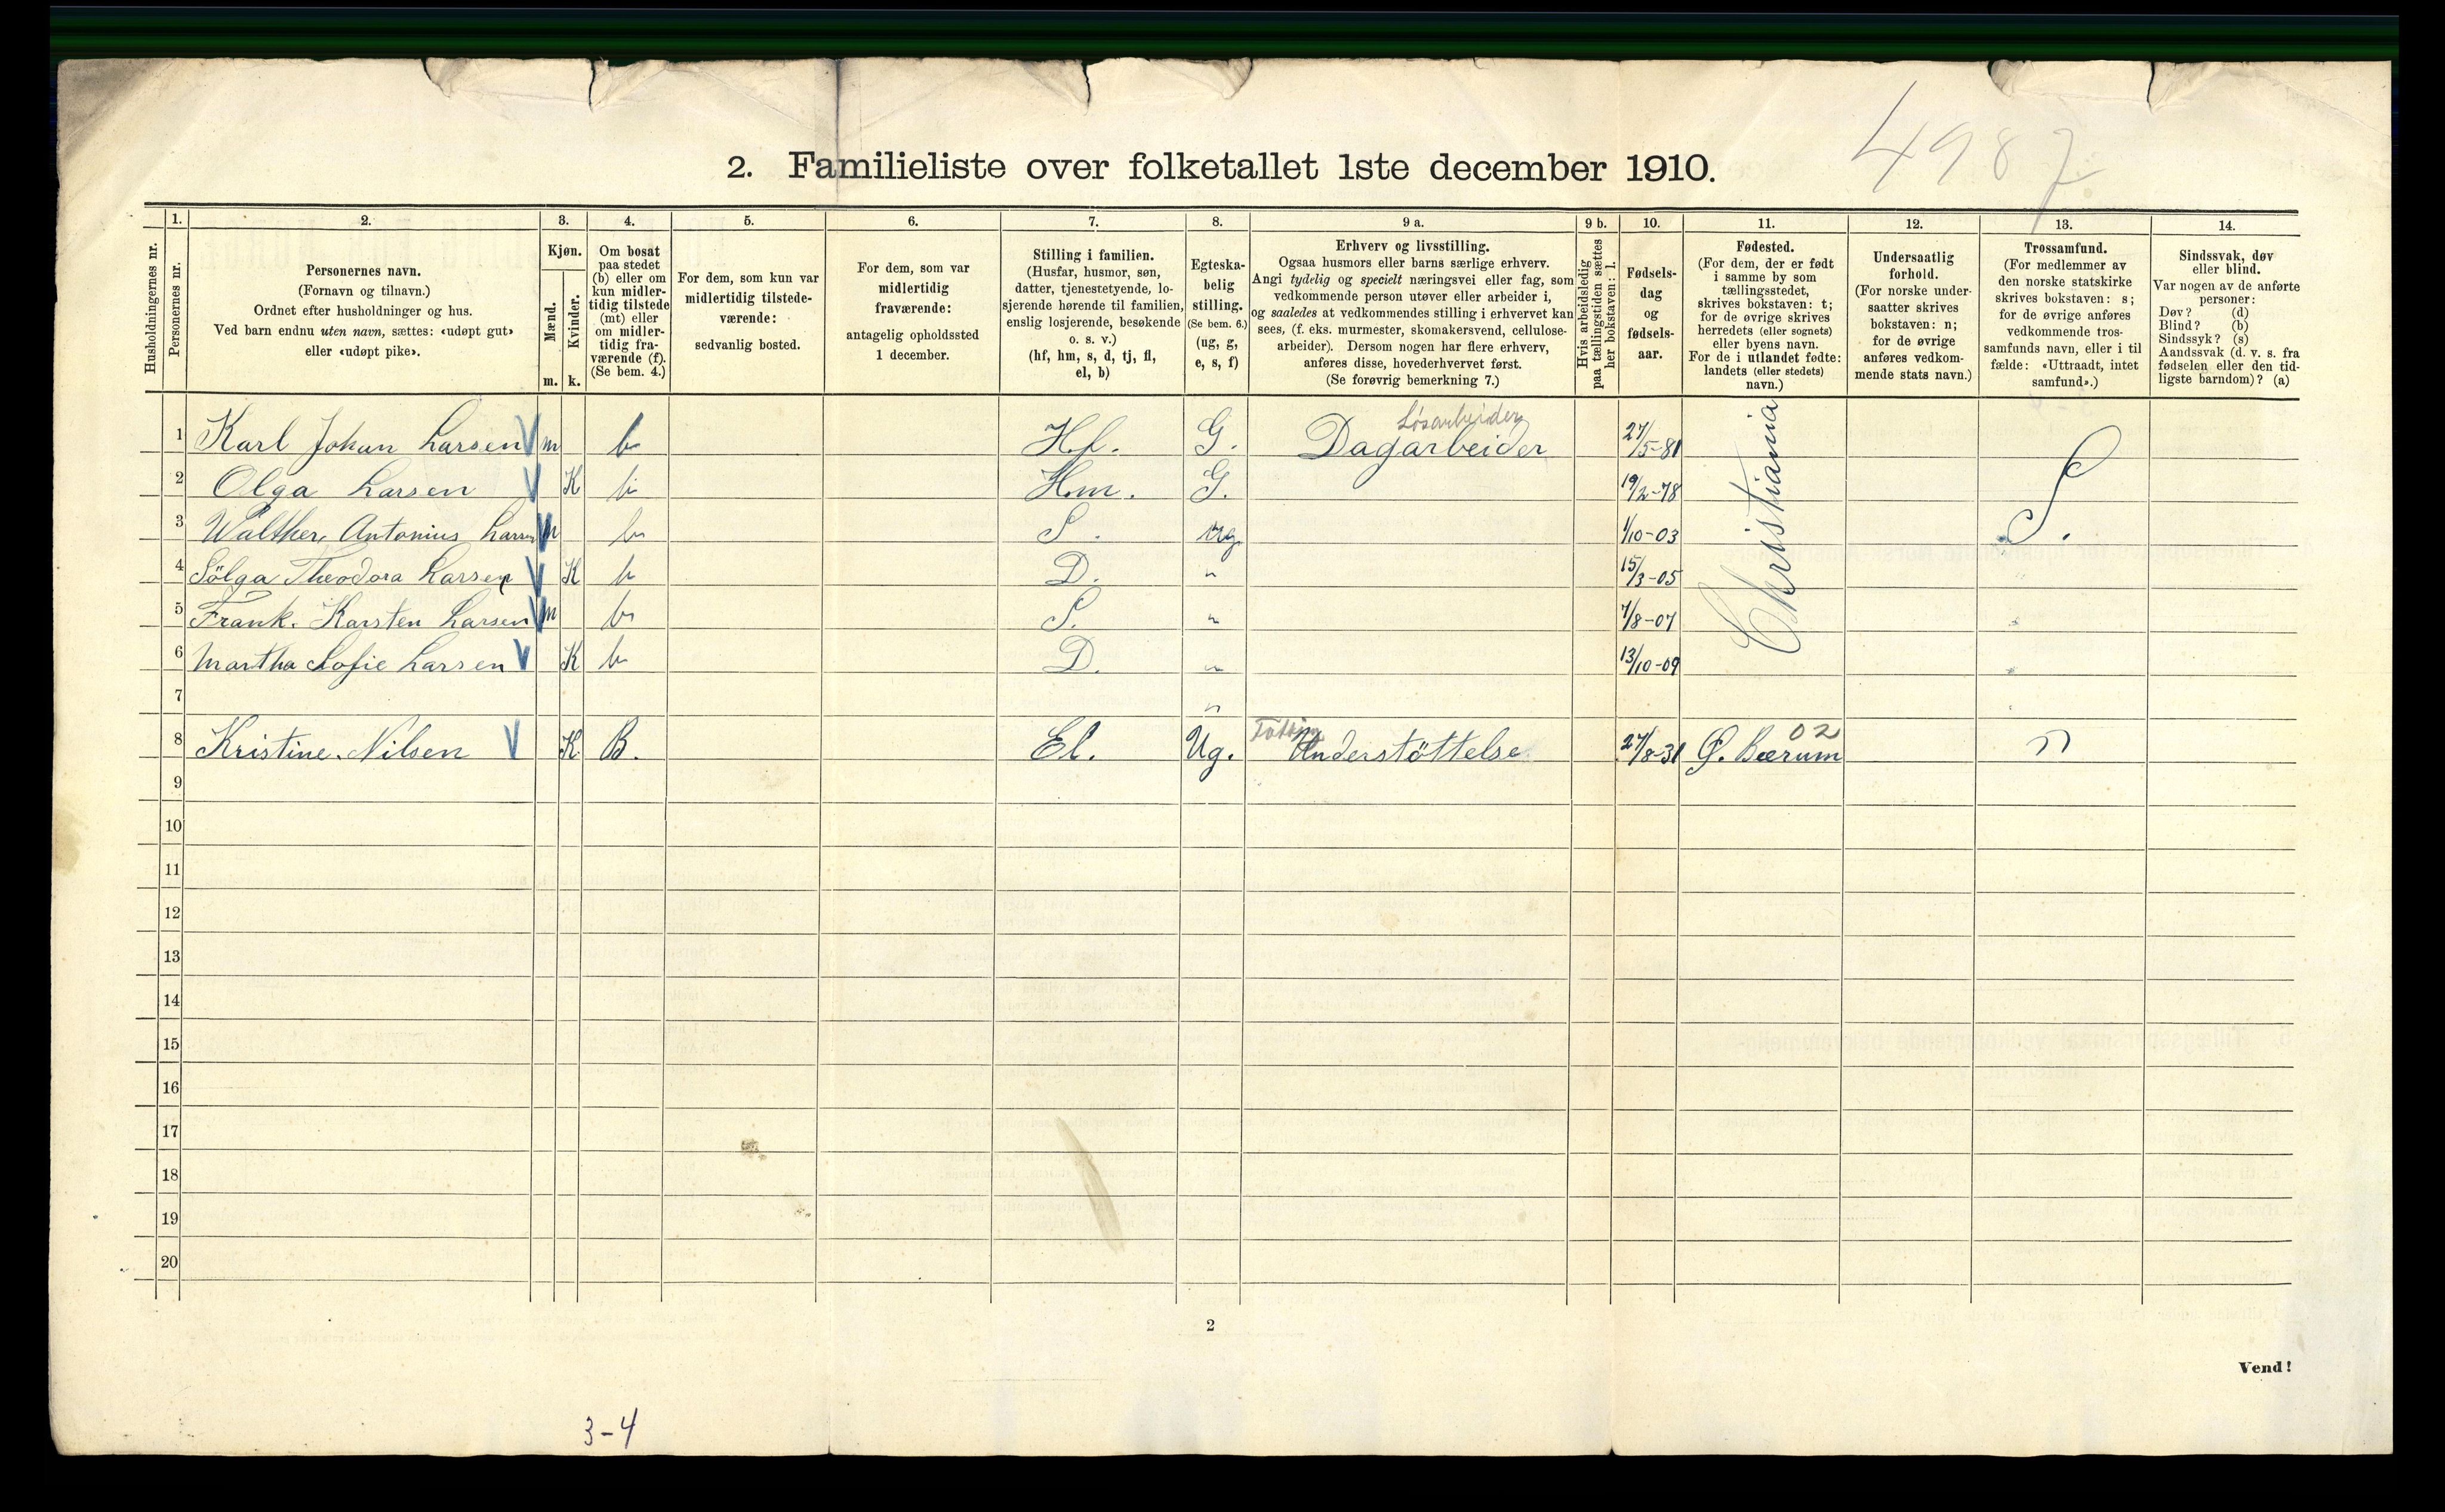 4987
2. Familieliste over folketallet 1ste december 1910.
Husholdningernes nr.
1. Personernes nr.
2. Personernes navn. (Fornavn og tilnavn.) Ordnet efter husholdninger og hus. Ved barn endnu uten navn, sættes: «udøpt gut» eller «udøpt pike».
3. Kjøn. Mænd. m. Kvinder. k.
4. Om bosat paa stedet (b) eller om kun midler- tidig tilstede (mt) eller om midler- tidig fra- værende (f). (Se bem. 4.)
5. For dem, som kun var midlertidig tilstede- værende: sedvanlig bosted.
6. For dem, som var midlertidig fraværende: antagelig opholdssted 1 december.
7. Stilling i familien. (Husfar, husmor, søn, datter, tjenestetyende, lo- sjerende hørende til familien, enslig losjerende, besøkende o. s. v.) (hf, hm, s, d, tj, fl, el, b)
8. Egteska- belig stilling. (Se bem. 6.) (ug, g, e, s, f)
9 a. Erhverv og livsstilling. Ogsaa husmors eller barns særlige erhverv. Angi tydelig og specielt næringsvei eller fag, som vedkommende person utøver eller arbeider i, og saaledes at vedkommendes stilling i erhvervet kan sees, (f. eks. murmester, skomakersvend, cellulose- arbeider). Dersom nogen har flere erhverv, anføres disse, hovederhvervet først. (Se forøvrig bemerkning 7.)
9 b. Hvis arbeidsledig paa tællingstiden sættes her bokstaven: l.
10. Fødsels- dag og fødsels- aar.
11. Fødested. (For dem, der er født i samme by som tællingsstedet, skrives bokstaven: t; for de øvrige skrives herredets (eller sognets) eller byens navn. For de i utlandet fødte: landets (eller stedets) navn.)
12. Undersaatlig forhold. (For norske under- saatter skrives bokstaven: n; for de øvrige anføres vedkom- mende stats navn.)
13. Trossamfund. (For medlemmer av den norske statskirke skrives bokstaven: s; for de øvrige anføres vedkommende tros- samfunds navn, eller i til fælde: «Uttraadt, intet samfund».)
14. Sindssvak, døv eller blind. Var nogen av de anførte personer: Døv? (d) Blind? (b) Sindssyk? (s) Aandssvak (d. v. s. fra fødselen eller den tid- ligste barndom)? (a)
Løsarbeider
1 Karl Johan Larsen V m b Hf. G. Dagarbeider 27/5-81 Christiania S.
2 Olga Larsen V K b Hm. G. 19/2-78
3 Walther Antonius Larsen V m b S. ug. 1/10-03
4 Sölga Theodora Larsen V K b D. " 15/3-05
5 Frank. Karsten Larsen V m b S. " 7/8-07
6 Martha Sofie Larsen V K b D. " 13/10-09
7 "
8 Kristine. Nilsen V K B. El. Ug. Understöttelse 27/8-31 Ø. Bærum 02
9
10
11
12
13
14
15
16
17
18
19
20
2
Vend!
3-4